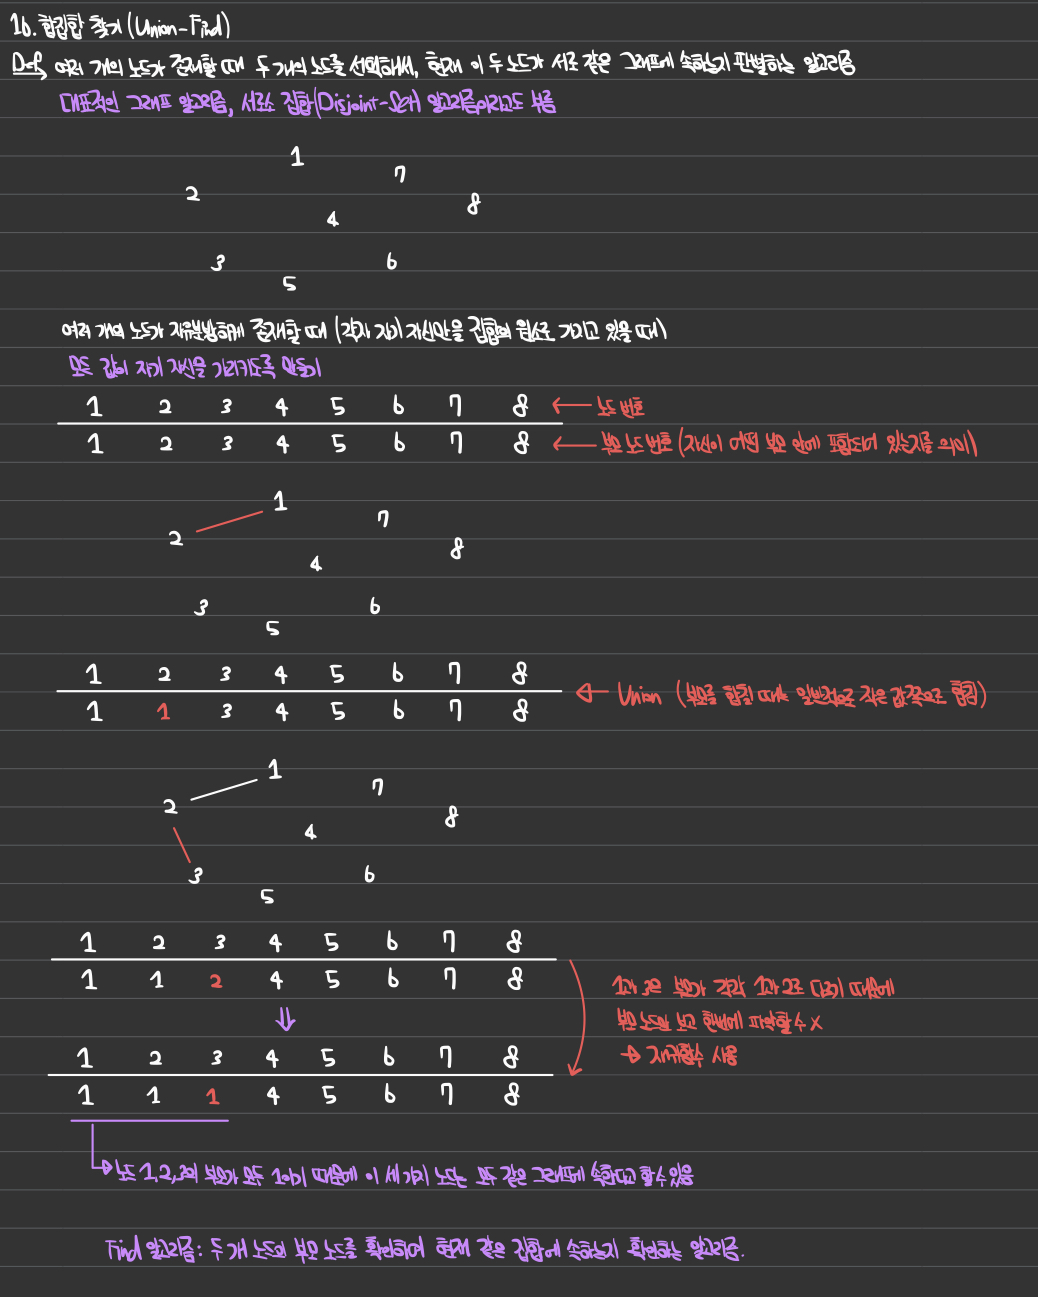 16. 합집합 찾기 (Union-Find)
Def, 여러 개의 노드가 존재할 때 두 개의 노드를 선택해서, 현재 이 두 노드가 서로 같은 그래프에 속하는지 판별하는 알고리즘
대표적인 그래프 알고리즘, 서로소 집합(Disjoint-Set) 알고리즘이라고도 부름
1
7
2
8
4
3
6
5
여러 개의 노드가 자유분방하게 존재할 때 (각자 자기 자신만을 집합의 원소로 가지고 있을 때)
모든 값이 자기 자신을 가리키도록 만들기
1 2 3 4 5 6 7 8 ← 노드 번호
1 2 3 4 5 6 7 8 ← 부모 노드 번호 (자신이 어떤 부모 안에 포함되어 있는지를 의미)
1
7
2
8
4
3
6
5
1 2 3 4 5 6 7 8
← Union (부모를 합칠 때는 일반적으로 작은 값쪽으로 합침)
1 1 3 4 5 6 7 8
1
7
2
8
4
3
6
5
1 2 3 4 5 6 7 8
1 1 2 4 5 6 7 8
1과 3은 부모가 각각 1과 2로 다르기 때문에
부모 노드만 보고 한번에 파악할 수 X
→ 재귀함수 사용
1 2 3 4 5 6 7 8
1 1 1 4 5 6 7 8
노드 1,2,3의 부모가 모두 1이기 때문에 이 세 가지 노드는 모두 같은 그래프에 속한다고 할 수 있음
Find 알고리즘: 두 개 노드의 부모 노드를 확인하여 현재 같은 집합에 속하는지 확인하는 알고리즘.